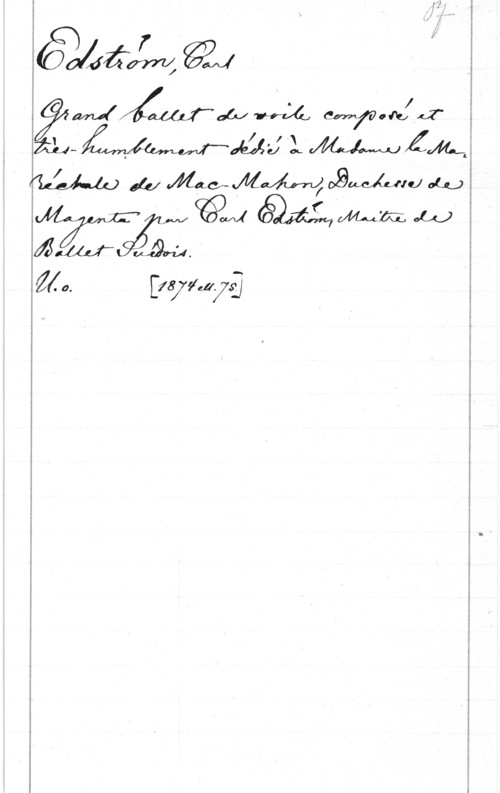 Edström, Carl
Grand ballet de voile composé et
très-humblement dédié à Madame la Ma-
réchale de Mac-Mahon, Duchesse de
Magenta par Carl Edström, Maître de
Ballet Suédois.
U. o. [1874 ell. 75]